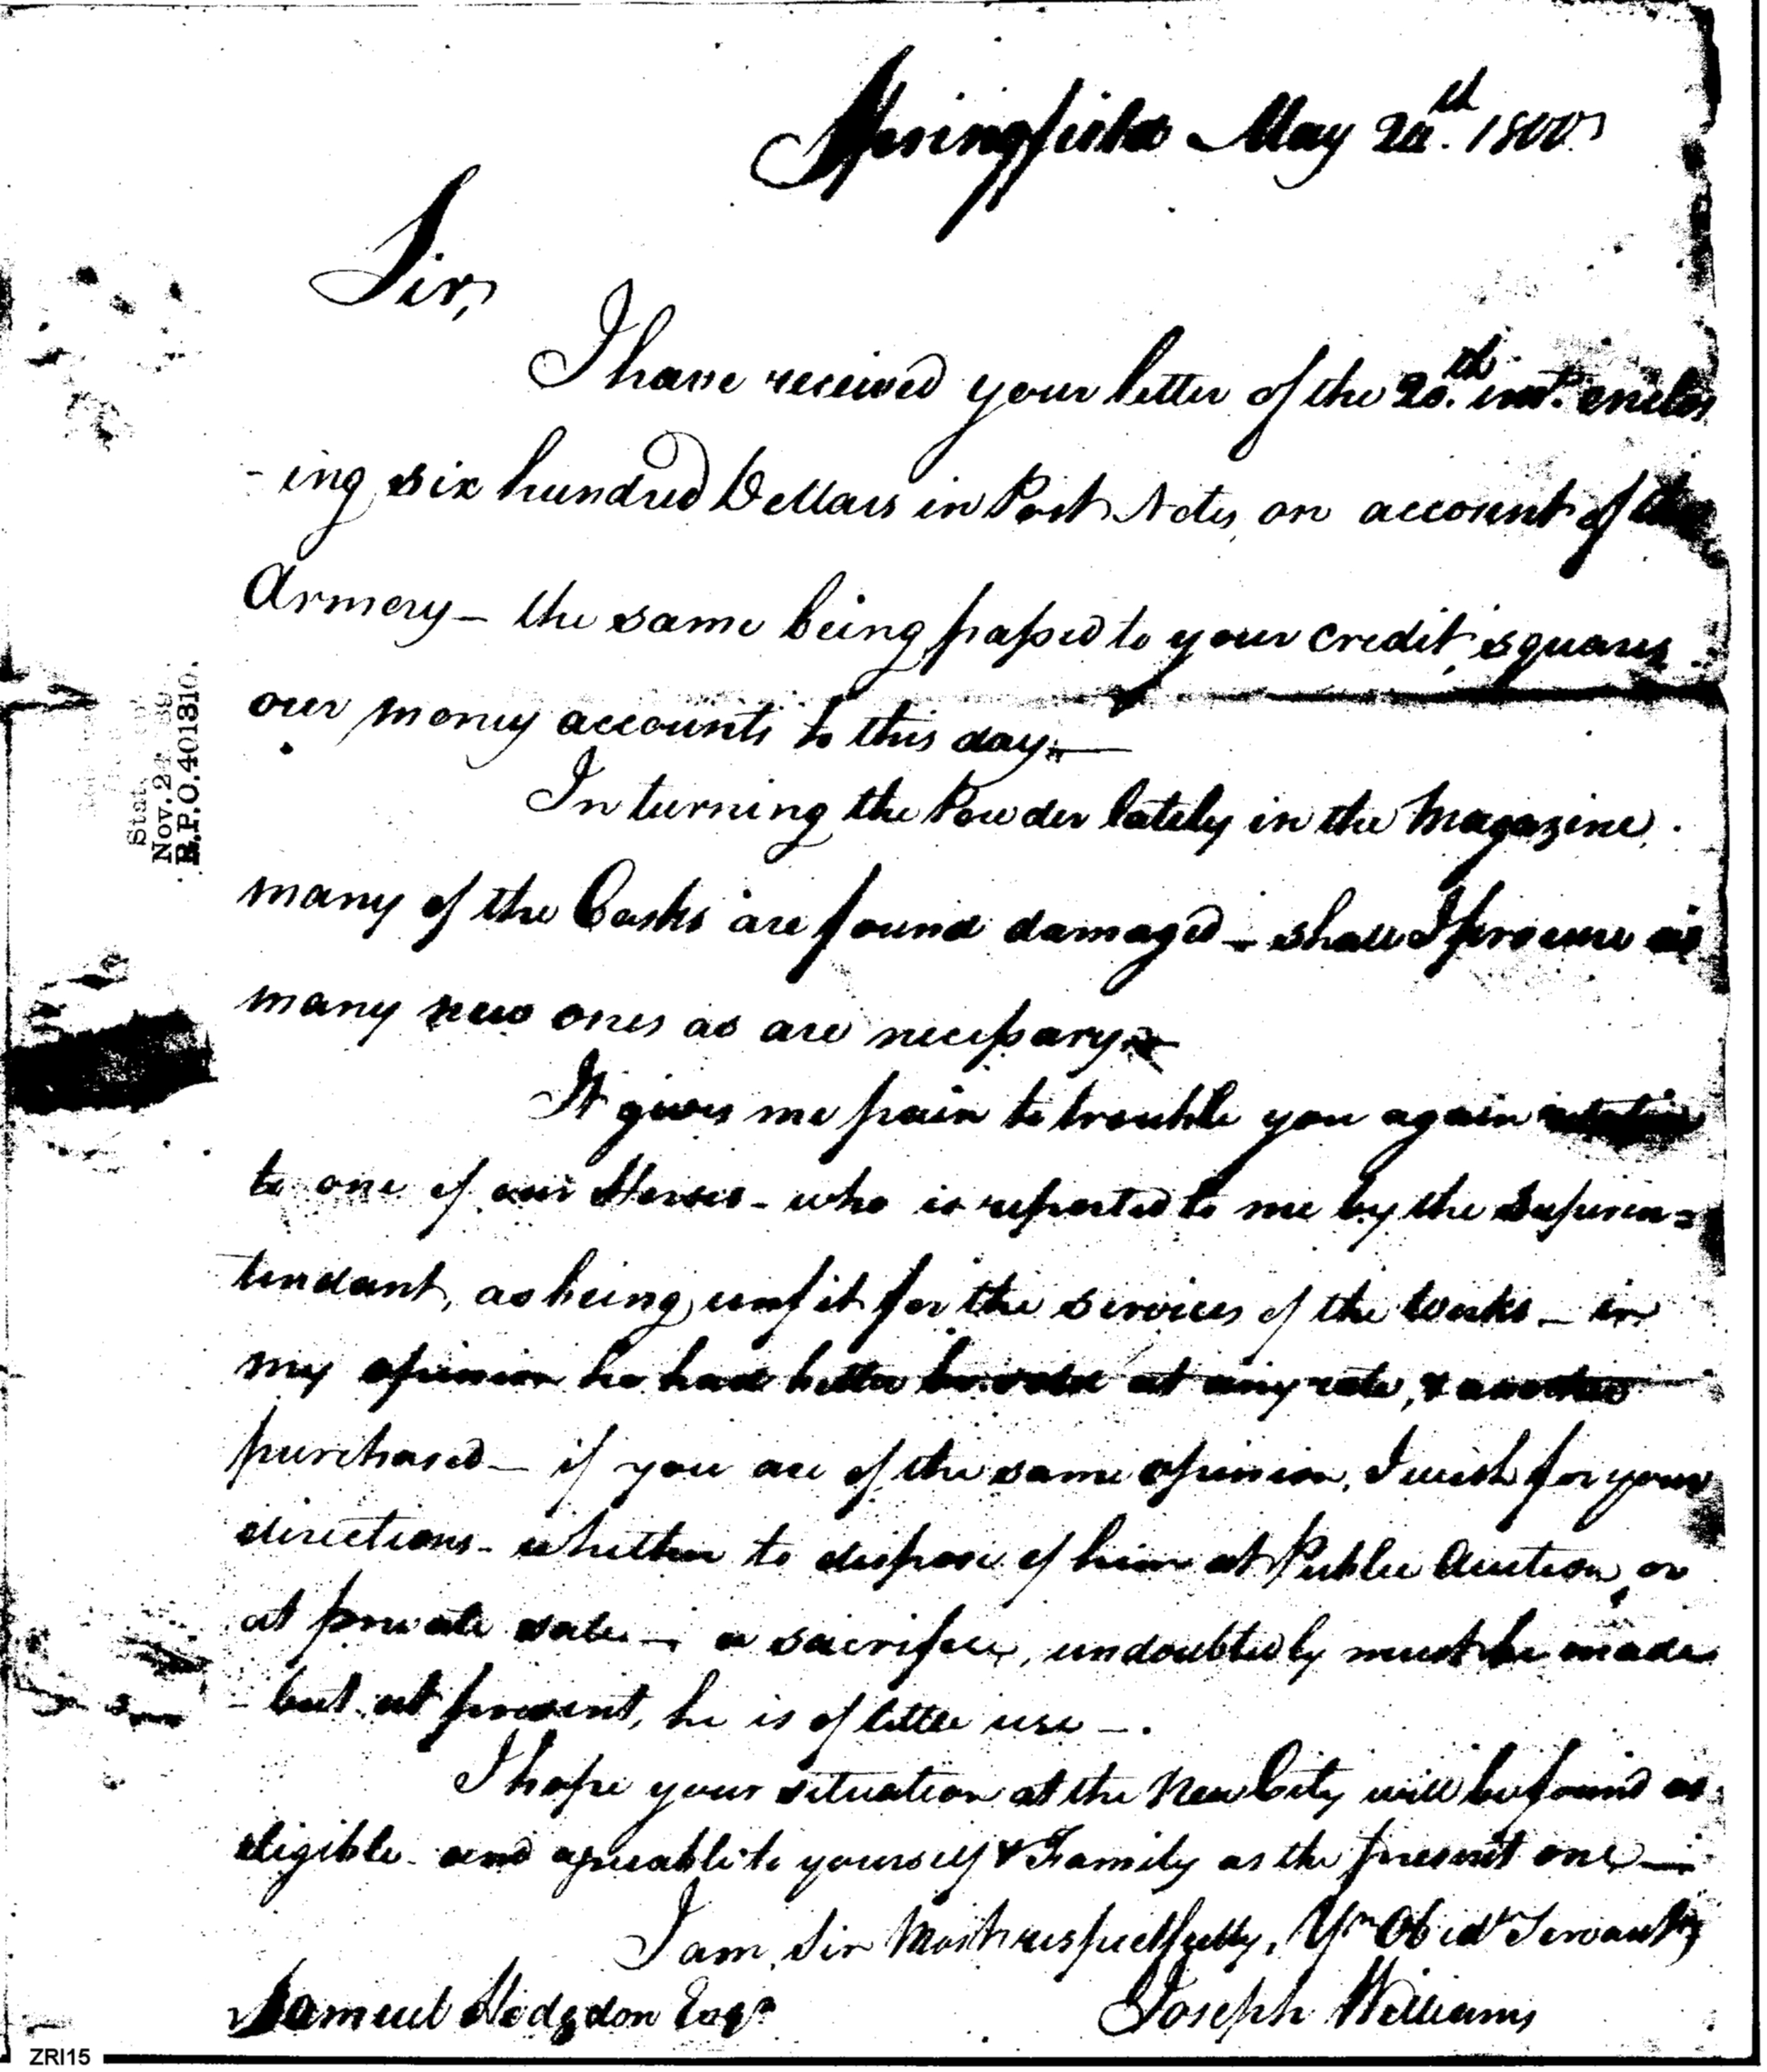 Springfield May 2 th. 1800
Sir,
I have received your letter of the 20.th inst. enclos
- ing six hundred Dollars in Post Notes, on account of the
Armory – the same being passed to your credit, squares
our money accounts to this day. —
In turning the Powder lately in the Magazine.
many of the Casks are found damaged – shall I procure as
many new ones as are necessary. –
It gives me pain to trouble you again relative
to one of our Horses – who is reported to me by the Superin=
tendant, as being unfit for the services of the works – in
my opinion he had better be sold at any rate, & another
purchased – if you are of the same opinion, I wish for your
directions – whether to dispose of him at Public Auction, or
at private sale – a sacrifice, undoubtedly must be made
– but at present, he is of little use –.
I hope your situation at the New City will be found as
eligible and agreeable to yourself & Family as the present one —
I am, Sir Most respectfully, Yr. Obedt Servant,
Samuel Hodgdon Esqr
Joseph Williams
Stat.
Nov. 24
R.P.O. 401310.
ZRI15